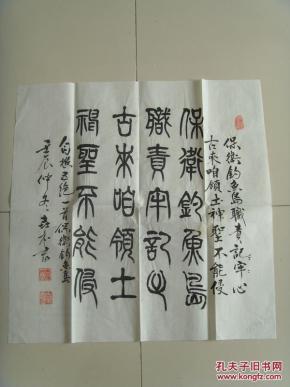 保衛釣魚島職責記牢心
古來咱領土神聖不能侵
保衛釣魚島
職責牢記心
古來咱領土
神聖不能侵
自撰五絕一首保衛釣魚島
壬辰仲冬
孔夫子旧书网